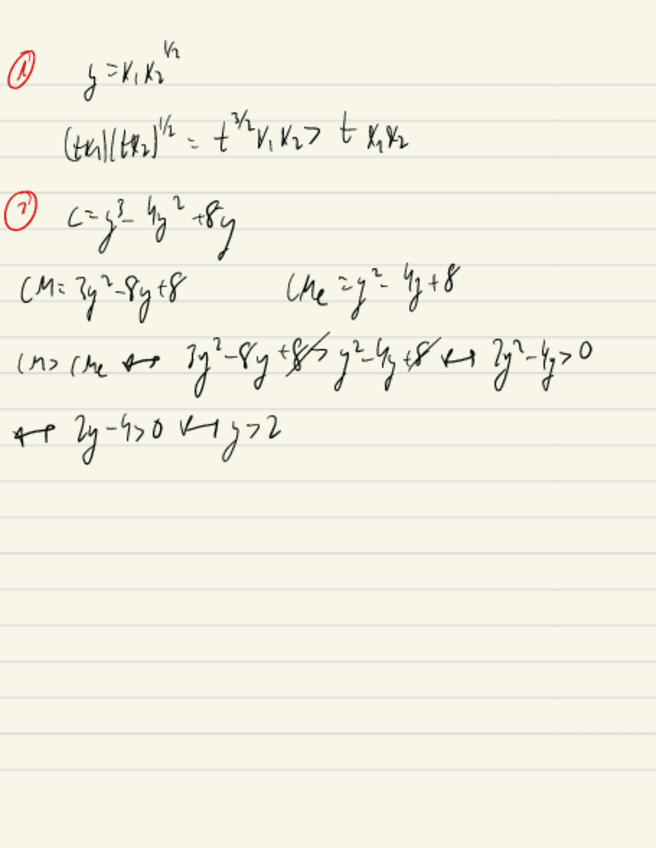 1) y = x₁x₂^1/2
(tx₁)(tx₂)^1/2 = t^3/2 x₁x₂ > t x₁x₂
2) C = y³ - 4y² + 8y
CM = 3y² - 8y + 8 CMe = y² - 4y + 8
CM > CMe ↔ 3y² - 8y + 8 > y² - 4y + 8 ↔ 2y² - 4y > 0
↔ 2y - 4 > 0 ↔ y > 2